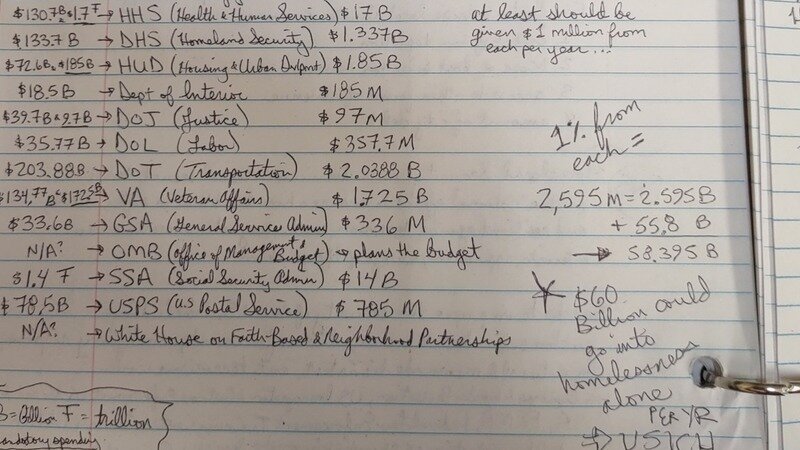 $130.7B & 1.7 F → HHS (Health & Human Services) $17B
$133.7 B → DHS (Homeland Security) $1.337B
$72.6B & $185B → HUD (Housing & Urban Dvlpmnt) $1.85B
$18.5B → Dept of Interior $185 M
$39.7B & 9.7B → DOJ (Justice) $97M
$35.77B → DOL (Labor) $357.7M
$203.88B → DOT (Transportation) $2.0388 B
$134.77B & $172.5B → VA (Veteran Affairs) $1.725 B
$33.6B → GSA (General Service Admin) $336 M
N/A? → OMB (Office of Management & Budget) → plans the budget
$1.4 F → SSA (Social Security Admin) $14B
$78.5B → USPS (U.S Postal Service) $785 M
N/A? → White House on Faith-Based & Neighborhood Partnerships
B = Billion F = trillion
mandatory spending
at least should be
given $1 million from
each per year...
1% from
each =
2,595 M = 2.595B
+ 55.8 B
→ 58.395 B
$60
Billion could
go into
homelessness
alone
PER YR
→ USICH